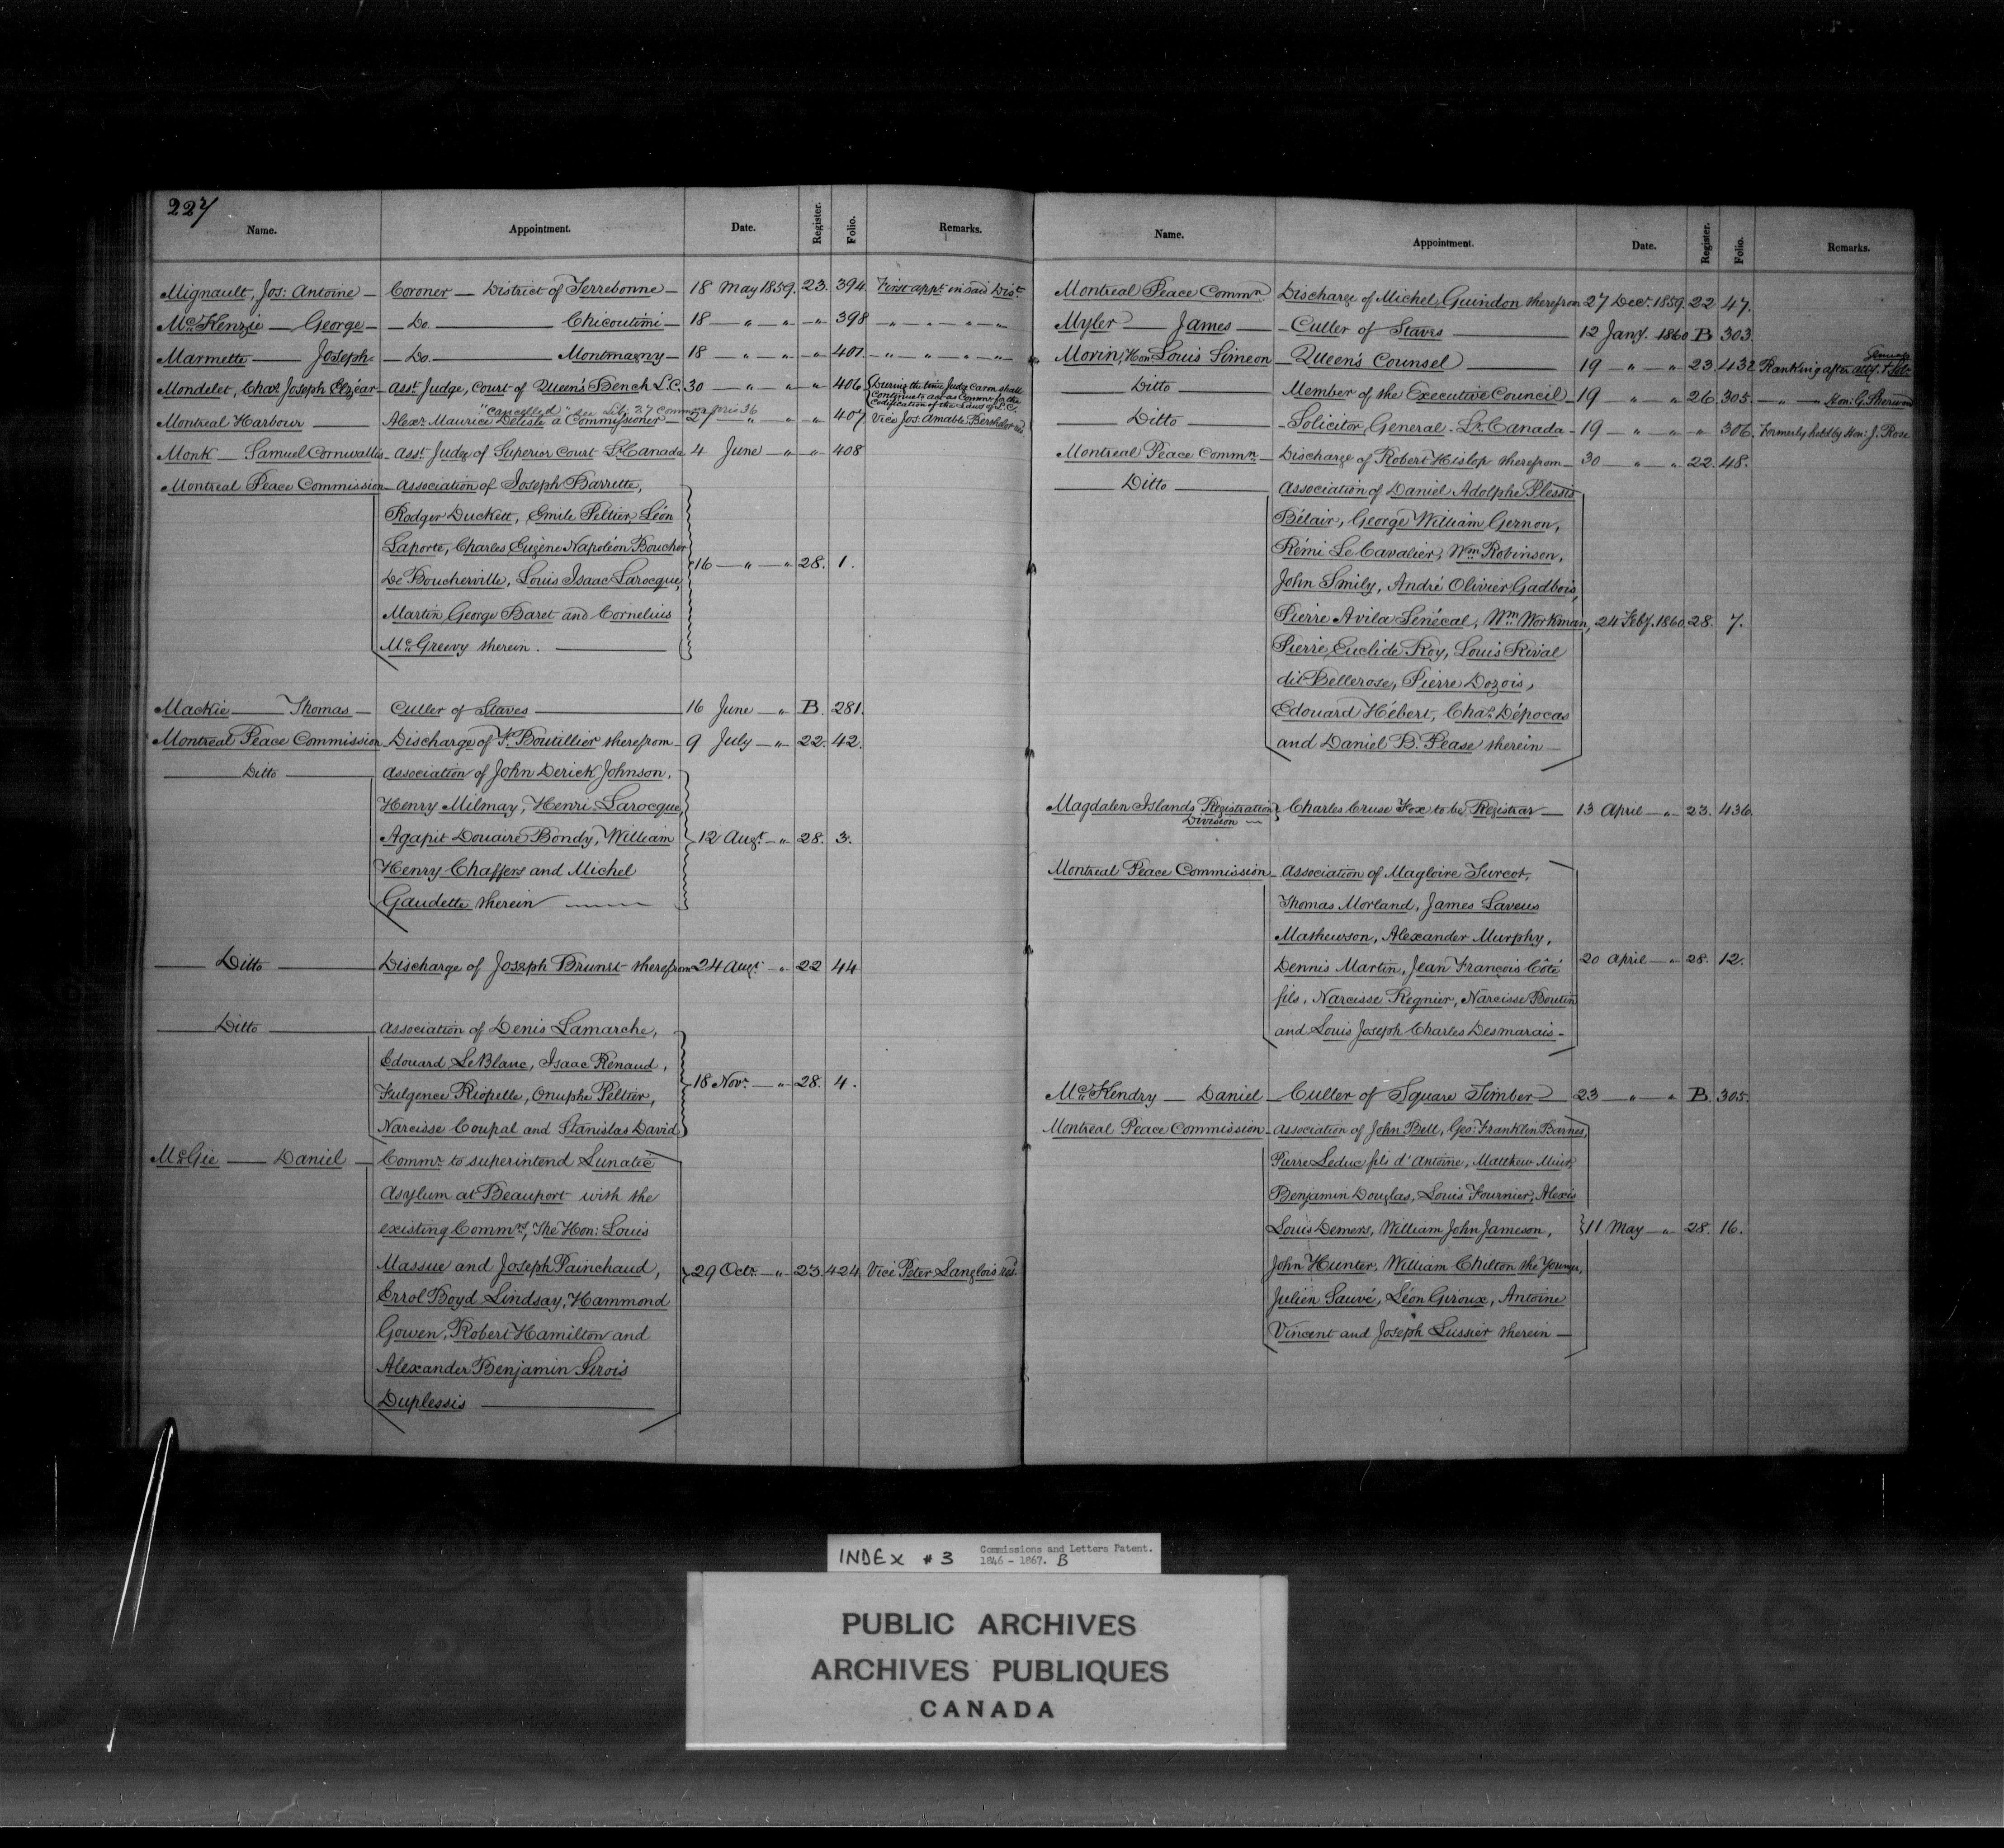 227
Name. Appointment. Date. Register. Folio. Remarks.
Mignault, Jos: Antoine — Coroner — District of Terrebonne — 18 May 1859. 23. 394. First appt. in said Dist.
McKenzie — George — Do. — Chicoutimi — 18 — " — " — " — 398 — " — " — " — " —
Marmette — Joseph — Do. — Montmagny — 18 — " — " — " — 401 — " — " — " — " —
Mondelet, Chas. Joseph Elzéar — Asst. Judge, Court of Queen's Bench L.C. 30 — " — " — " 406 During the time Judge Caron shall
continue to act as Commr. for the
Codification of the Laws of L.C.
"Cancelled" see Lib: 27 Commns folio 36
Montreal Harbour — Alexr. Maurice Delisle a Commissioner — 27 — " — " — " 407 Vice Jos: Amable Berthelot res.
Monk — Samuel Cornwallis — Asst. Judge of Superior Court Lr. Canada 4 June — " — " 408
Montreal Peace Commission — Association of Joseph Barrette,
Rodger Duckett, Emile Peltier, Léon
Laporte, Charles Eugène Napoléon Boucher
De Boucherville, Louis Isaac Larocque, 16 — " — " 28. 1.
Martin George Baret and Cornelius
McGreevy therein. —
Mackie — Thomas — Culler of Staves — 16 June — " B. 281.
Montreal Peace Commission — Discharge of T. Boutillier therefrom — 9 July — " 22. 42.
Ditto — Association of John Derick Johnson,
Henry Milmay, Henri Larocque,
Agapit Douaire Bondy, William 12 Augt. — " 28. 3.
Henry Chaffers and Michel
Gaudette therein —
Ditto — Discharge of Joseph Brunet therefrom 24 Augt. — " 22 44
Ditto — Association of Denis Lamarche,
Edouard LeBlanc, Isaac Renaud,
Fulgence Riopelle, Onuphe Peltier, 18 Novr. — " 28. 4.
Narcisse Coupal and Stanislas David
McGie — Daniel — Commr. to superintend Lunatic
Asylum at Beauport with the
existing Commrs., The Hon: Louis
Massue and Joseph Painchaud, 29 Octr. — " 23. 424. Vice Peter Langlois res.
Errol Boyd Lindsay, Hammond
Gowen, Robert Hamilton and
Alexander Benjamin Sirois
Duplessis —
Name. Appointment. Date. Register. Folio. Remarks.
Montreal Peace Commn. Discharge of Michel Guindon therefrom 27 Decr. 1859. 22 47.
Myler — James — Culler of Staves — 12 Jany. 1860 B 303.
Morin, Hon: Louis Simeon — Queen's Counsel — 19 — " — " 23. 432 Ranking after Atty. & Solr. Generals
Ditto — Member of the Executive Council — 19 — " — " 26. 305. — " — Hon: G. Sherwood
Ditto — Solicitor General — Lr. Canada — 19 — " — " — " 306. Formerly held by Hon: J. Rose
Montreal Peace Commn. — Discharge of Robert Hislop therefrom — 30 — " — " 22. 48.
Ditto — Association of Daniel Adolphe Plessis
Bélair, George William Gernon,
Rémi Le Cavalier, Wm. Robinson,
John Smily, André Olivier Gadbois,
Pierre Avila Sénécal, Wm. Workman, 24 Feby. 1860. 28. 7.
Pierre Euclide Roy, Louis Rival
dit Bellerose, Pierre Dozois,
Edouard Hébert, Chas. Dépocas
and Daniel B. Pease therein —
Magdalen Islands Registration Charles Cruse Fox to be Registrar — 13 April — " 23. 436.
Division —
Montreal Peace Commission — Association of Magloire Turcot,
Thomas Morland, James Laveus
Mathewson, Alexander Murphy,
Dennis Martin, Jean François Côté 20 April — " 28. 12.
fils, Narcisse Regnier, Narcisse Boutin
and Louis Joseph Charles Desmarais —
McKendry — Daniel — Culler of Square Timber — 23 — " — " B. 305.
Montreal Peace Commission — Association of John Bell, Geo: Franklin Barnes,
Pierre Leduc fils d'Antoine, Matthew Muir,
Benjamin Douglas, Louis Fournier, Alexis
Louis Demers, William John Jameson, 11 May — " 28. 16.
John Hunter, William Chilton the Younger,
Julien Sauvé, Léon Giroux, Antoine
Vincent and Joseph Lussier therein —
INDEX #3 Commissions and Letters Patent.
1846 - 1867. B
PUBLIC ARCHIVES
ARCHIVES PUBLIQUES
CANADA